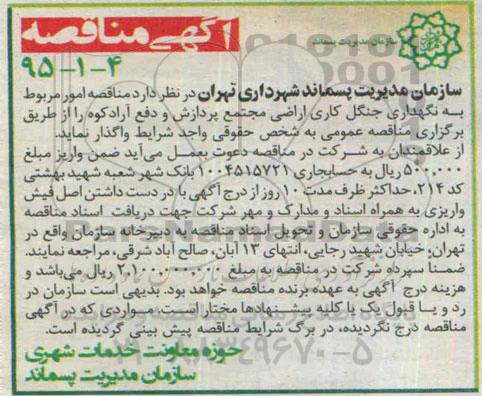 سازمان مدیریت پسماند
آگهی مناقصه
۹۵-۱-۴
سازمان مدیریت پسماند شهرداری تهران در نظر دارد مناقصه امور مربوط
به نگهداری جنگل کاری اراضی مجتمع پردازش و دفع آرادکوه را از طریق
برگزاری مناقصه عمومی به شخص حقوقی واجد شرایط واگذار نماید.
از علاقمندان به شرکت در مناقصه دعوت بعمل می‌آید ضمن واریز مبلغ
۵۰۰،۰۰۰ ریال به حسابجاری ۱۰۰۴۵۱۵۷۲۱ بانک شهر شعبه شهید بهشتی
کد ۲۱۴، حداکثر ظرف مدت ۱۰ روز از درج آگهی با در دست داشتن اصل فیش
واریزی به همراه اسناد و مدارک و مهر شرکت جهت دریافت اسناد مناقصه
به اداره حقوقی سازمان و تحویل اسناد مناقصه به دبیرخانه سازمان واقع در
تهران، خیابان شهید رجایی، انتهای ۱۳ آبان، صالح آباد شرقی، مراجعه نمایند.
ضمناً سپرده شرکت در مناقصه به مبلغ ۲،۱۰۰،۰۰۰،۰۰۰ ریال می‌باشد و
هزینه درج آگهی به عهده برنده مناقصه خواهد بود. بدیهی است سازمان در
رد و یا قبول یک یا کلیه پیشنهادها مختار است. مواردی که در آگهی
مناقصه درج نگردیده، در برگ شرایط مناقصه پیش بینی گردیده است.
حوزه معاونت خدمات شهری
سازمان مدیریت پسماند